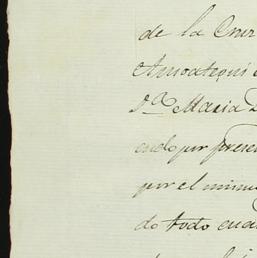 de la Cruz
Amoategui
D.ª Maria
endo por presen
por el mismo
do todo cua